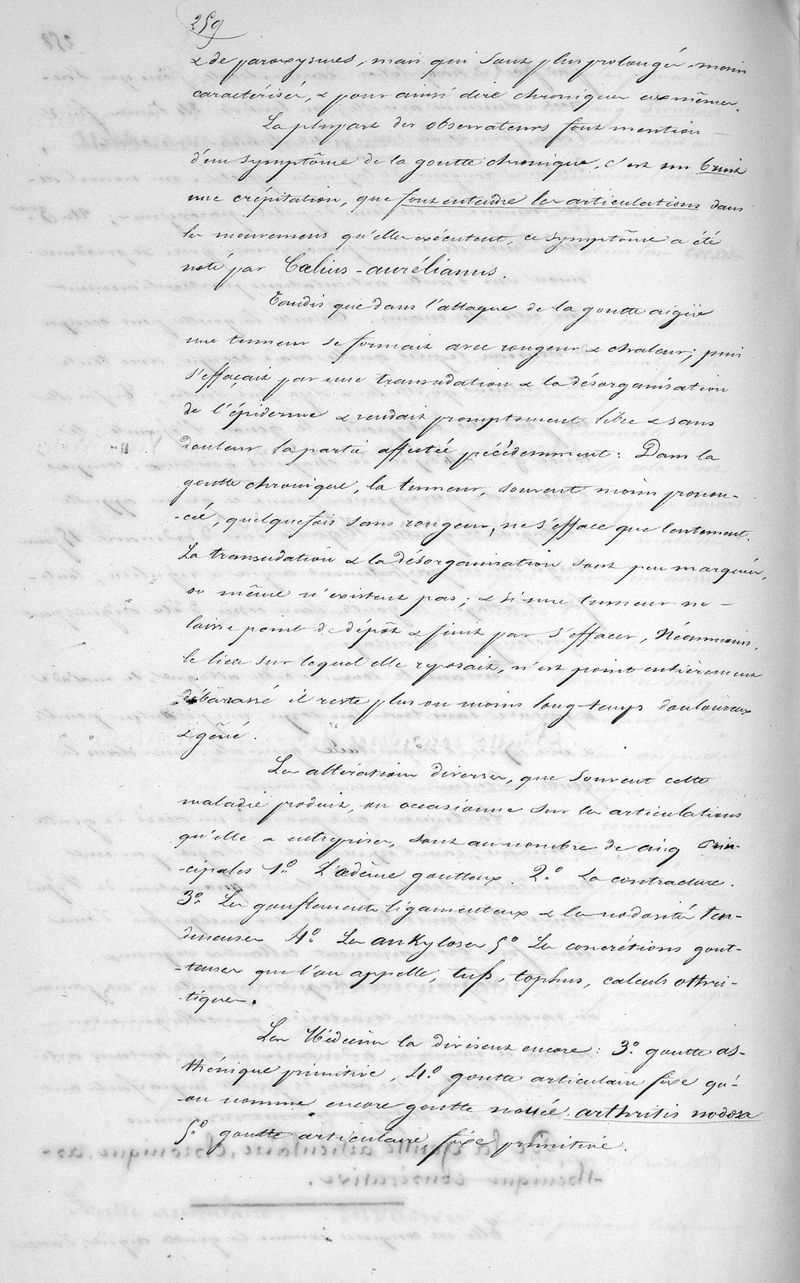 259
& de paroxysmes, mais qui sont plus prolongés, moins
caractérisés, & pour ainsi dire chroniques eux mêmes.
La plupart des observateurs font mention
d'un symptôme de la goutte chronique, c'est un bruit
une crépitation, que font entendre les articulations dans
les mouvemens qu'elles exécutent, ce symptôme a été
noté par Cœlius-aurélianus.
Tandis que dans l'attaque de la goutte aigüe
une tumeur se formait avec rougeur & chaleur; puis
s'effaçait par une transudation & la désorganisation
de l'épiderme & rendait promptement libre & sans
douleur la partie affectée précédemment: Dans la
goutte chronique, la tumeur, souvent moins pronon-
-cée, quelquefois sans rougeur, ne s'efface que lentement.
La transudation & la désorganisation sont peu marquées,
ou même n'existent pas; & si une tumeur ne
laisse point de dépôt & finit par s'effacer, Néanmoins,
le lieu sur lequel elle reposait, n'est point entièrement
débarassé il reste plus ou moins long-temps douloureux
& gêné.
Les altérations diverses, que souvent cette
maladie produit, ou occasionne sur les articulations
qu'elle a entreprises, sont au nombre de cinq prin-
-cipales 1.º L'œdème goutteux. 2.º La contracture.
3.º Les gonflements ligamenteux & les nodosités ten-
dineuses 4.º Les ankyloses 5.º Les concrétions gout-
-teuses que l'on appelle, tufs, tophus, calculs athri-
-tiques.
Les Médecins la divisent encore: 3.º goutte as-
thénique primitive, 4.º goutte articulaire fixe qu'-
on nomme encore goutte nouée arthritis nodosa
5.º goutte articulaire fixe primitive.